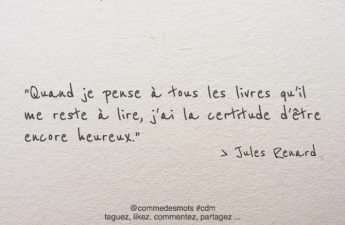 "Quand je pense à tous les livres qu'il
me reste à lire, j'ai la certitude d'être
encore heureux."
> Jules Renard
@commedesmots #cdm
taguez, likez, commentez, partagez ...